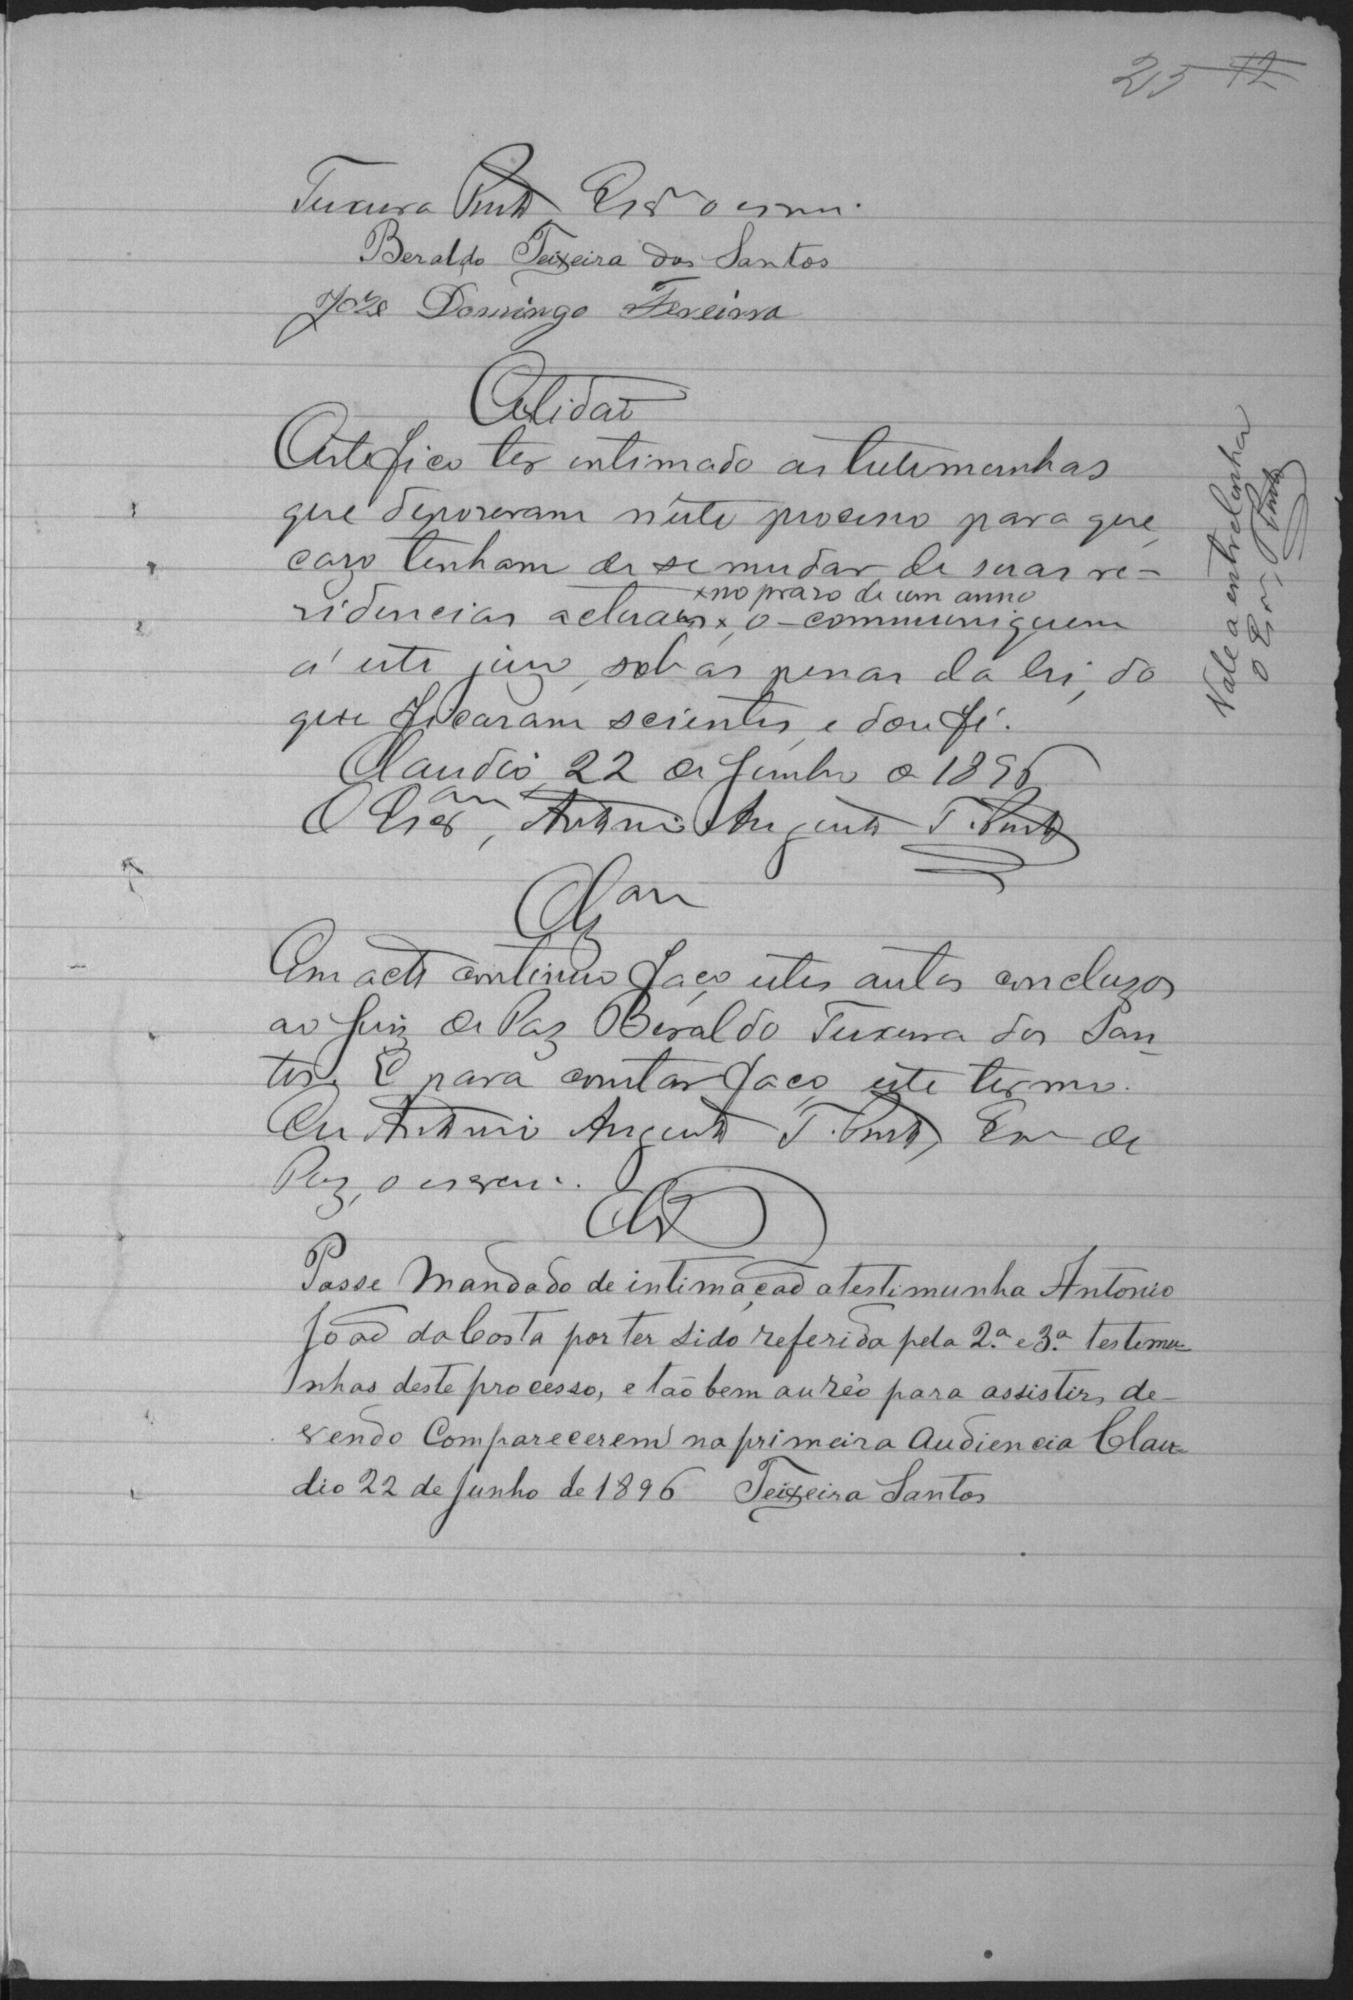 25 12
Teixeira Pinto, Escrm o escrevi.
Beraldo Teixeira dos Santos
Joze Domingo Fereirra
Certidaõ
Certefico ter entimado as testemunhas
que depozeram n'este processo para que,
cazo tenham de se mudar de suas re-
zidencias actuaes × o communiquem
× no prazo de um anno
á este juizo, sob as penas da lei, do
que ficaram scientes, e dou fé.
Claudio, 22 de Junho de 1896
O Escram, Antonio Augusto T. Pinto
Vale a entrelinha
O Escr, T. Pinto
Clzam
Em acto continuo faço estes autos concluzos
ao Juiz de Paz Beraldo Teixeira dos San-
tos. E para constar faço este termo.
Eu Antonio Augusto T. Pinto, Em de
Paz, o escrevi.
Clz
Passe Mandado de intimaçaõ a testimunha Antonio
Joaõ da Costa por ter sido referida pela 2.ª e 3.ª testemu-
nhas deste processo, e taõ bem au réo para assistir, de-
vendo Comparecerem na primeira Audiencia Clau-
dio 22 de Junho de 1896 Teixeira Santos